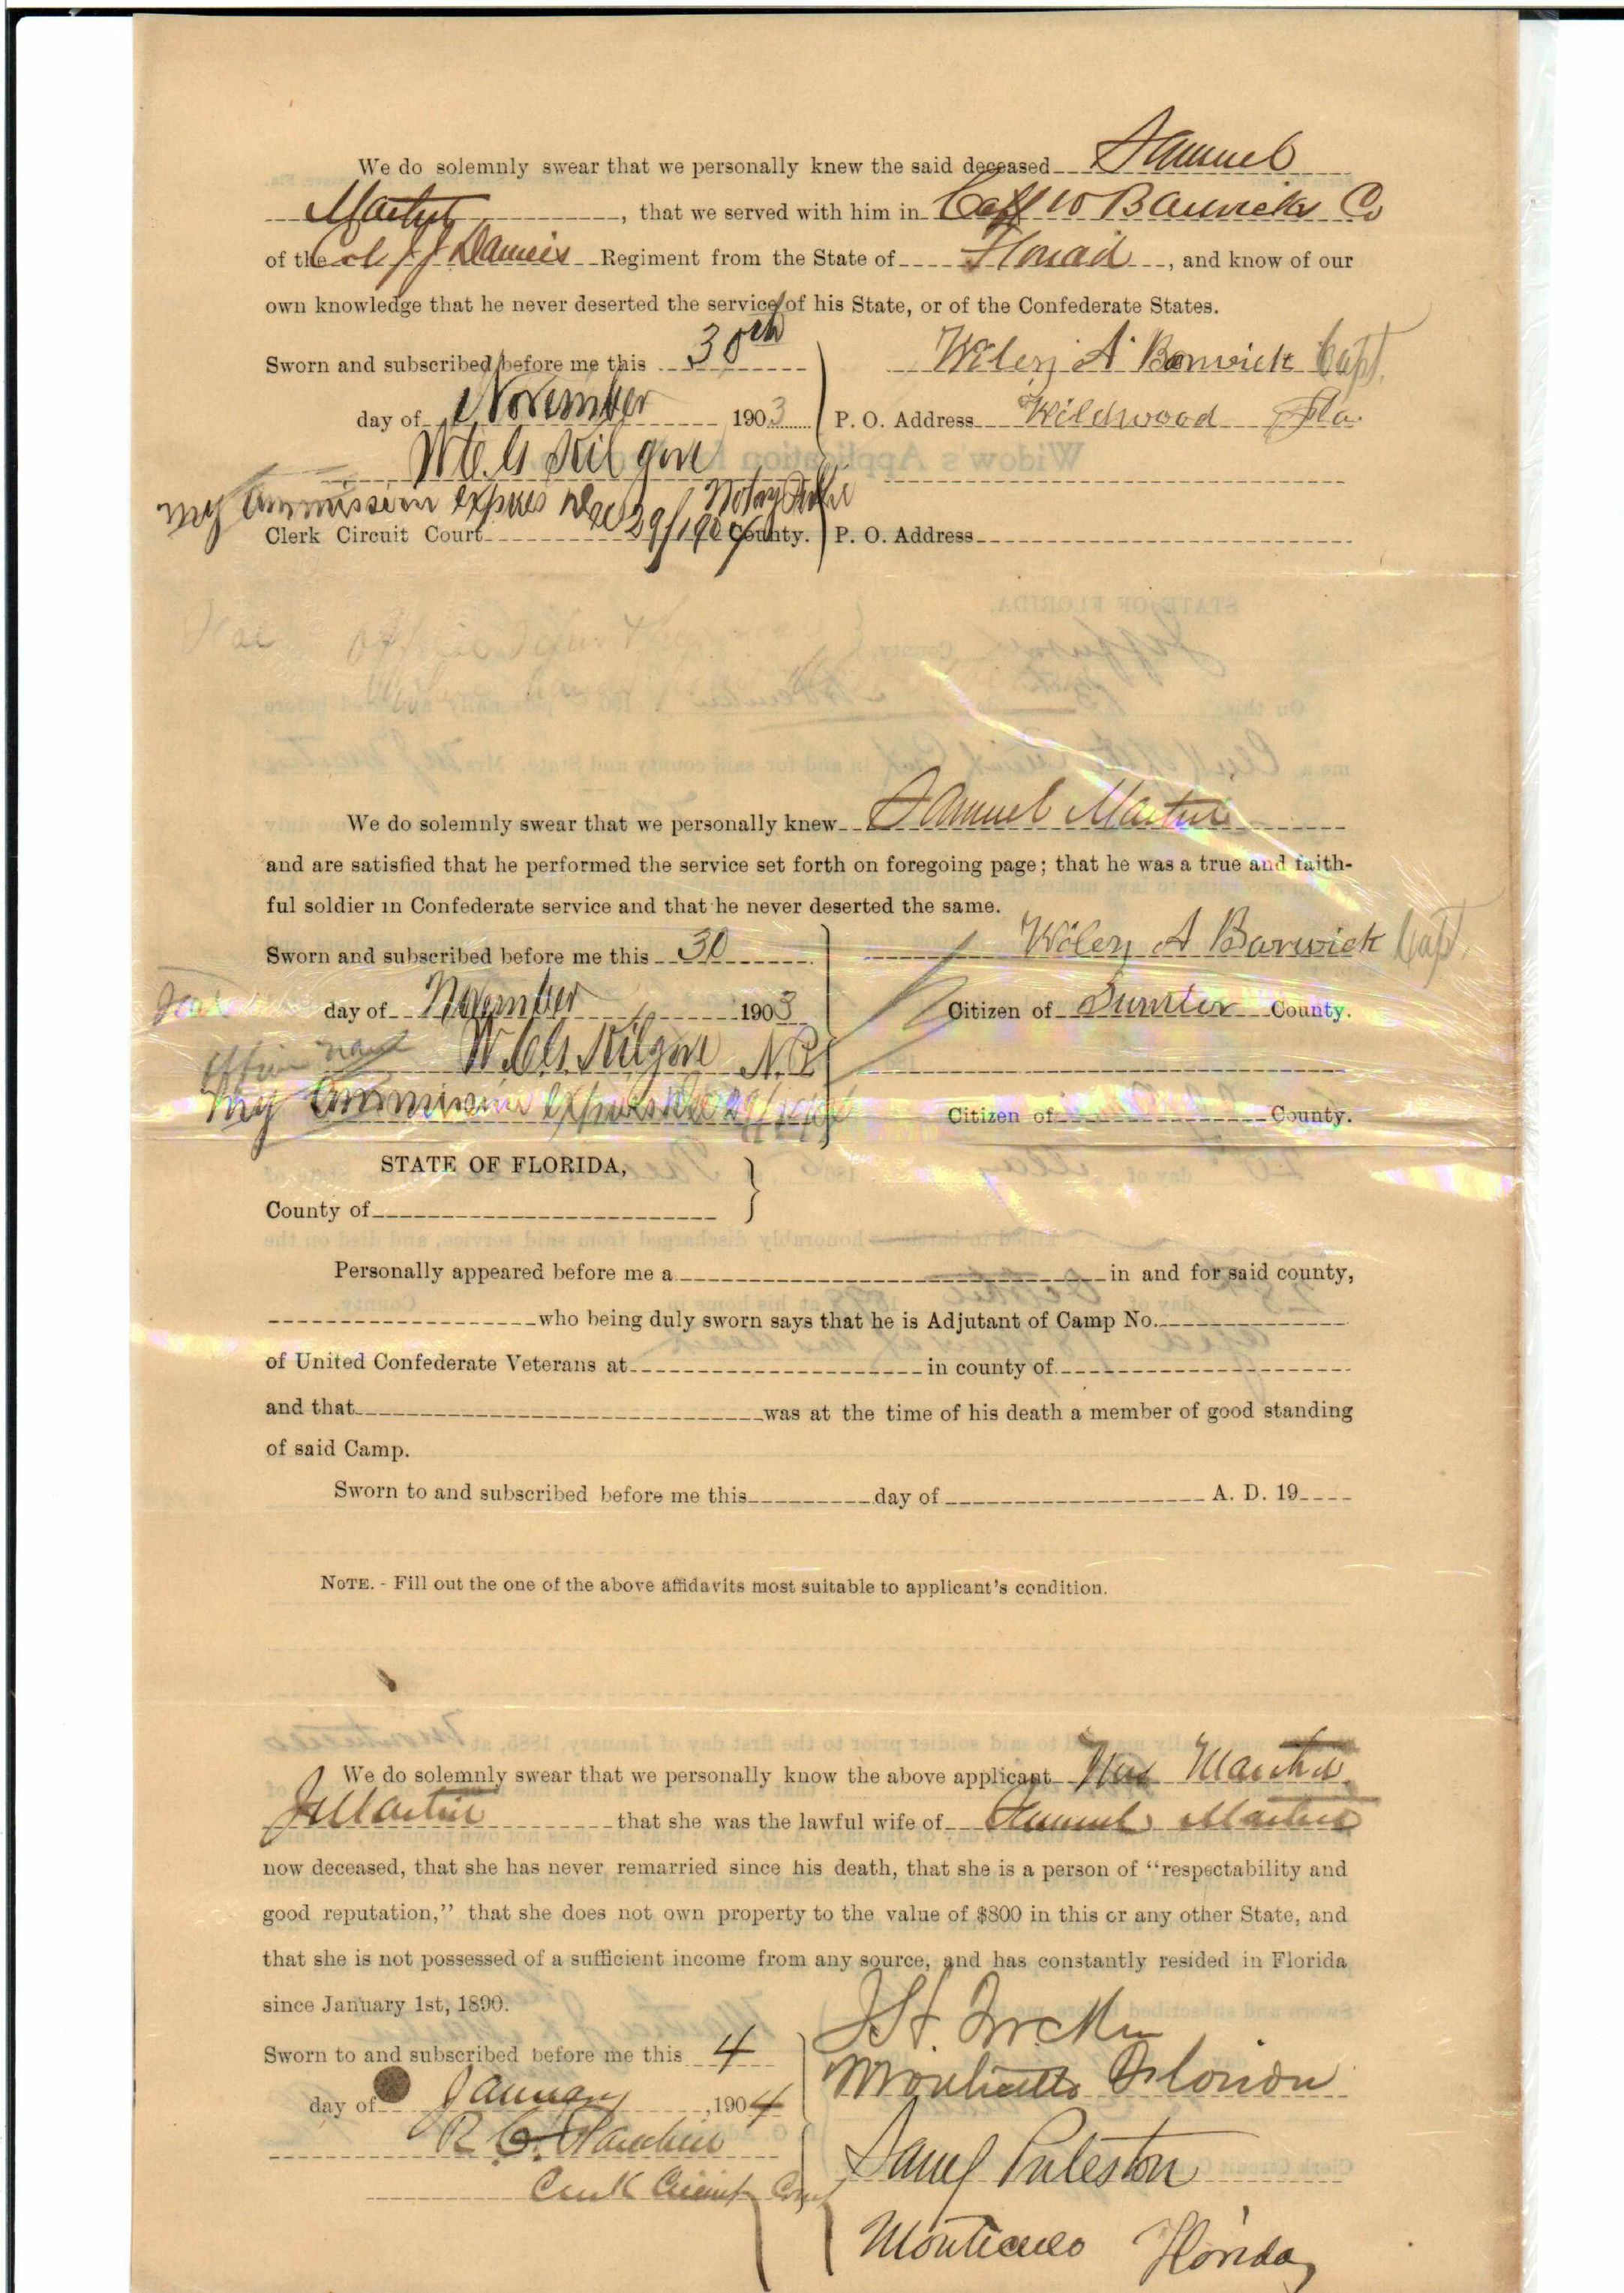 We do solemnly swear that we personally knew the said deceased Samuel
Martin, that we served with him in Capt W Barwicks Co
of the Col J J Daniels Regiment from the State of Florida, and know of our
own knowledge that he never deserted the service of his State, or of the Confederate States.
Sworn and subscribed before me this 30th
Wiley A Barwick Capt.
day of November 1903
P. O. Address Wildwood Fla.
W. C. G. Kilgore
Notary Public
My Commission expires Dec 29/190
Clerk Circuit Court County.
P. O. Address
We do solemnly swear that we personally knew Samuel Martin
and are satisfied that he performed the service set forth on foregoing page; that he was a true and faith-
ful soldier in Confederate service and that he never deserted the same.
Sworn and subscribed before me this 30
Wiley A Barwick Capt.
day of November 1903
Citizen of Sumter County.
W. C. G. Kilgore N.P.
My Commission expires Dec 29/190
Citizen of County.
STATE OF FLORIDA,
County of
Personally appeared before me a in and for said county,
who being duly sworn says that he is Adjutant of Camp No.
of United Confederate Veterans at in county of
and that was at the time of his death a member of good standing
of said Camp.
Sworn to and subscribed before me this day of A. D. 19
NOTE. - Fill out the one of the above affidavits most suitable to applicant's condition.
We do solemnly swear that we personally know the above applicant Mrs Martha
J Martin that she was the lawful wife of Samuel Martin
now deceased, that she has never remarried since his death, that she is a person of "respectability and
good reputation," that she does not own property to the value of $800 in this or any other State, and
that she is not possessed of a sufficient income from any source, and has constantly resided in Florida
since January 1st, 1890.
Sworn to and subscribed before me this 4
day of January, 1904
Monticello Florida
R. C.
Clerk Circuit Court
Saml Puleston
Monticello Florida